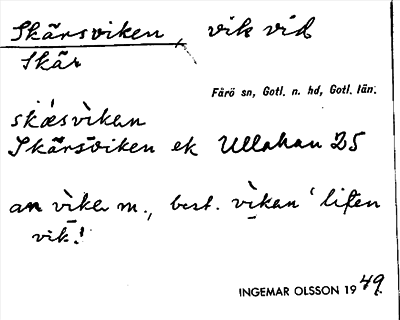 Skärsviken, vik vid
Skär
Fårö sn, Gotl. n. hd, Gotl. län.
skǽsvìkan
Skärsviken ek Ullahau 25
an vìka m., best. vìkan 'liten
vik'.
INGEMAR OLSSON 1949.